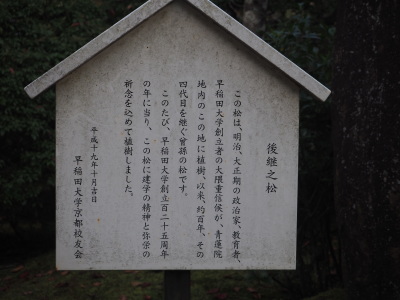 後継之松
この松は、明治、大正期の政治家、教育者、
早稲田大学創立者の大隈重信候が、青蓮院
地内のこの地に植樹、以来、約百年、その
四代目を継ぐ曾孫の松です。
このたび、早稲田大学創立百二十五周年
の年に当り、この松に建学の精神と弥栄の
祈念を込めて植樹しました。
平成十九年十月吉日
早稲田大学京都校友会